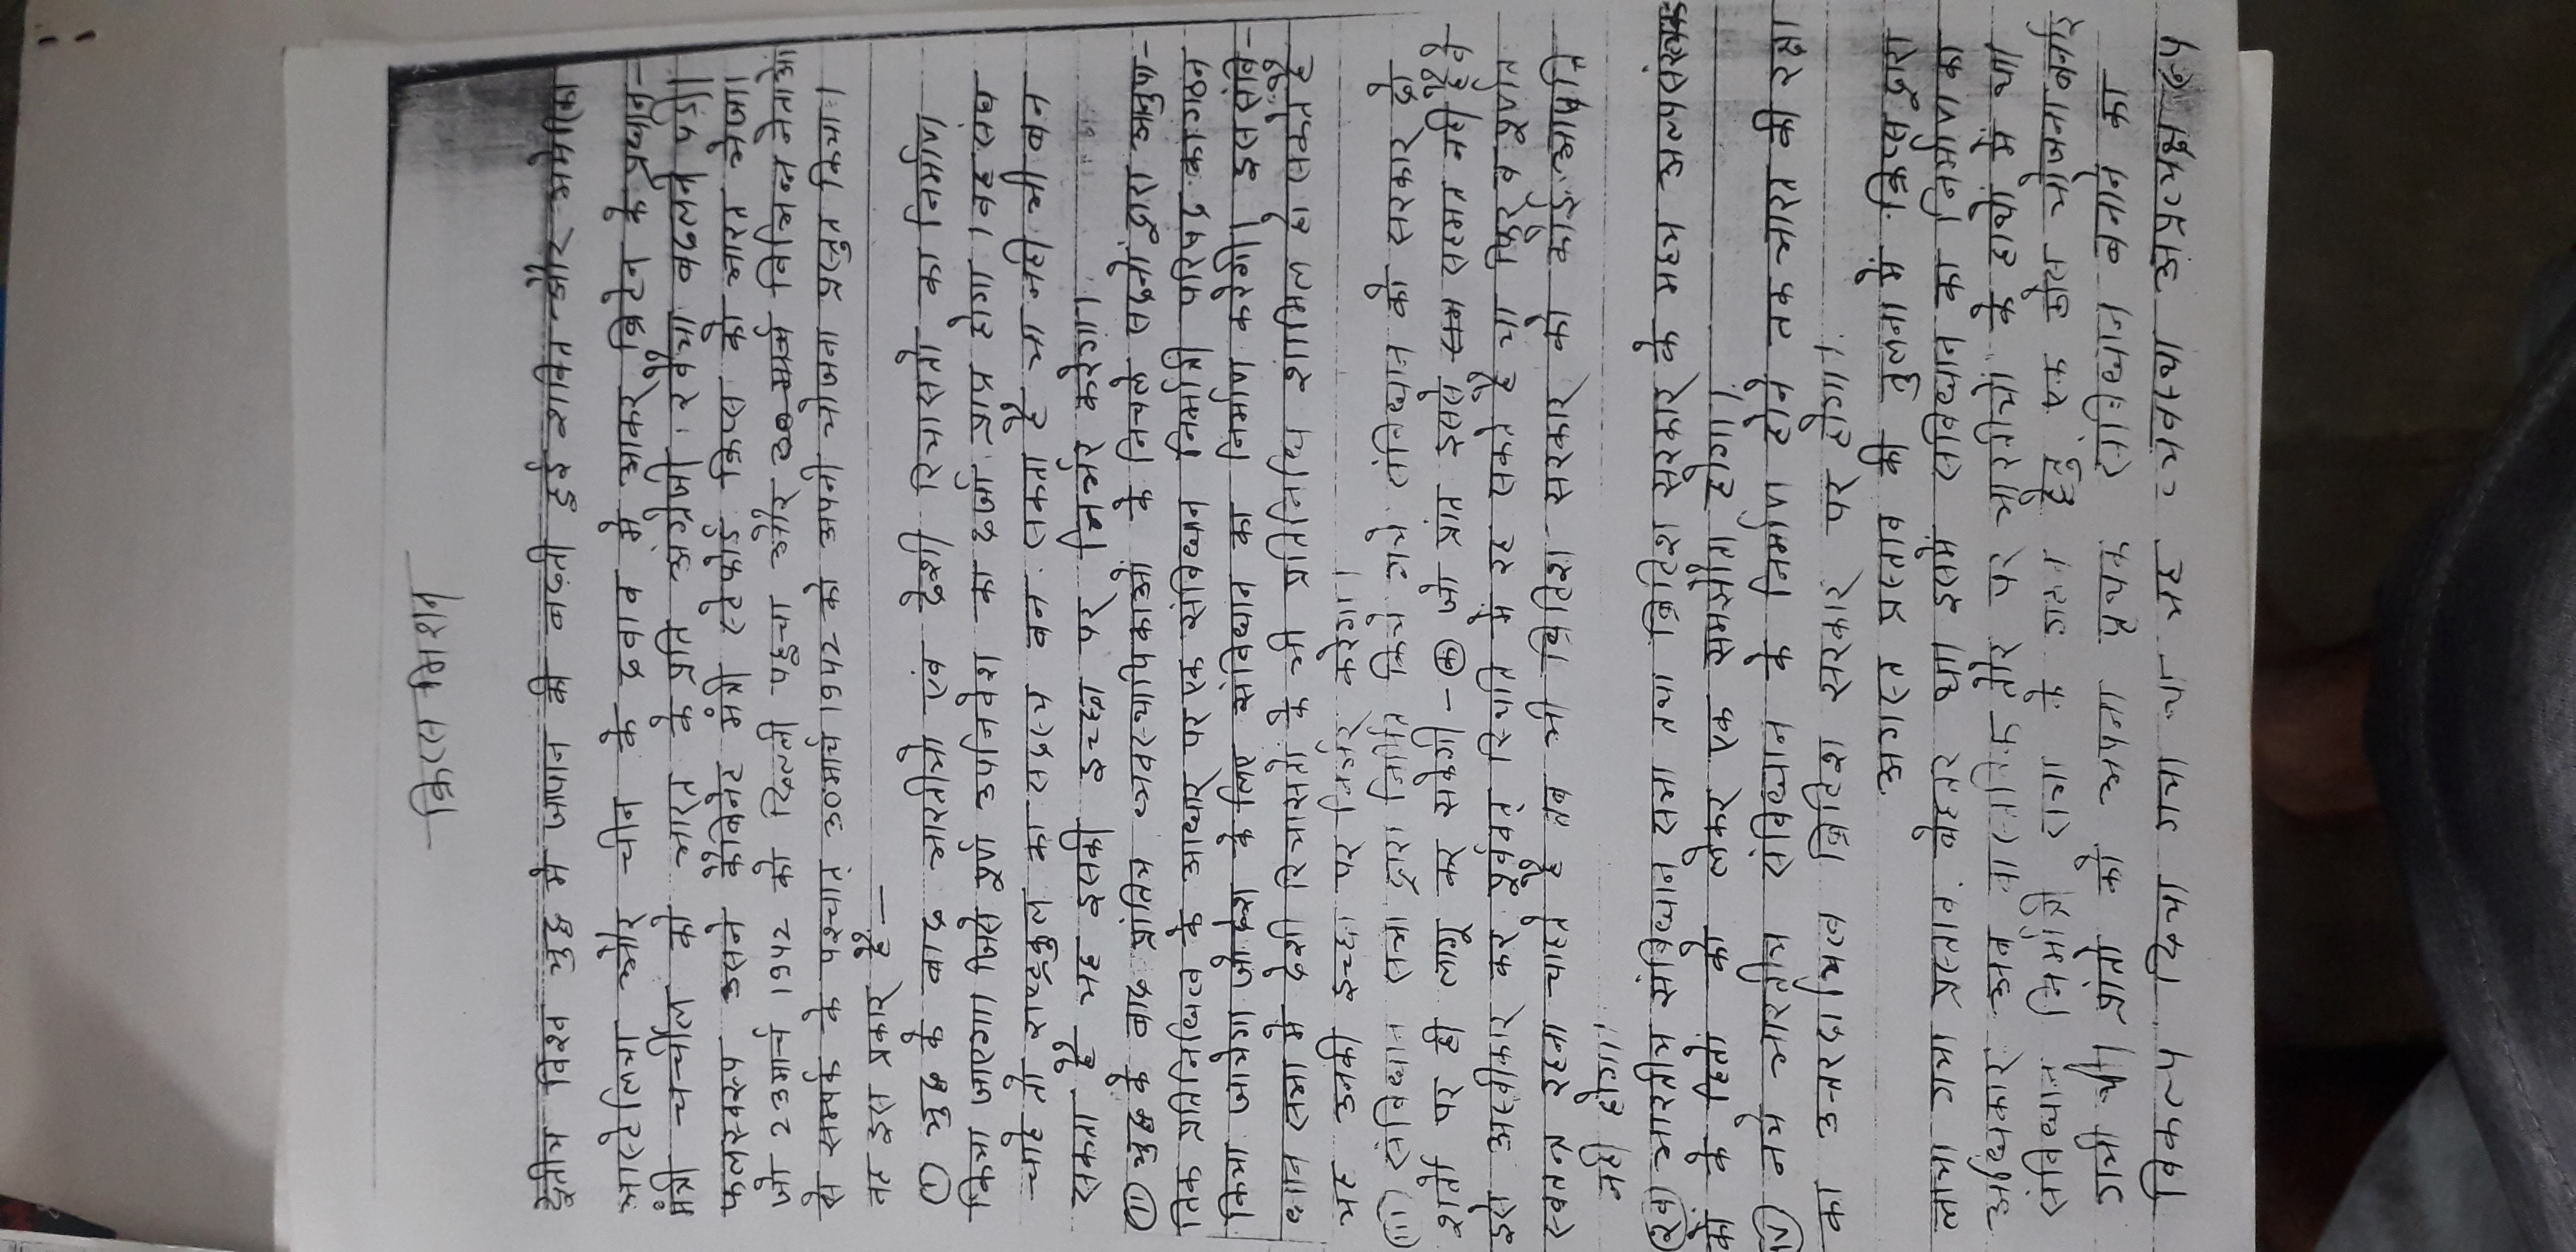 क्रिप्स मिशन
द्वितीय विश्व युद्ध मे जापान की बढ़ती हुई शक्ति और अमेरिका
आस्ट्रेलिया और चीन के दबाव मे आकर ब्रिटेन के प्रधान-
मंत्री चर्चील को भारत के प्रति अंग्रेजी रवैया बदलने पड़ा
फलस्वरूप उसने कैबिनेट मंत्री स्टेफोर्ड क्रिप्स को भारत भेजा
जो 23मार्च 1942 को दिल्ली पहुचा और विभिन्न नेताओ
से सम्पर्क के पश्चात् 30मार्च 1942 को अपनी योजना प्रस्तुत किया।
वह इस प्रकार है—
① युद्ध के बाद भारतीयो एवं देशी रियासतो का निर्माण
किया जाएगा जिसे पूर्ण उपनिवेश का दर्जा प्राप्त होगा । वह संघ
चाहे तो राष्ट्रकुल का सदस्य बन सकता है या नही भी बन
सकता है यह इसकी इच्छा पर निर्भर करेगा।
(ii) युद्ध के बाद प्रांतिय व्यवस्थापिकाओ के निचले सदनो द्वारा आनुपा-
तिक प्रतिनिधित्व के आधार पर एक संविधान निर्मात्री परिषद् का गठन
किया जायेगा जो देश के लिए संविधान का निर्माण करेगी। इस संवि-
धान सभा मे देशी रियासतो के भी प्रतिनिधि शामिल हो सकते है
यह उनकी इच्छा पर निर्भर करेगा।
(iii) संविधान सभा द्वारा निर्मित किये गये संविधान को सरकार दो
शर्तो पर ही लागू कर सकेगी - (क) जो प्रांत इससे सहमत नही है वे
इसे अस्वीकार कर पूर्ववत् स्थिति में रह सकते है या फिर वे पूर्णत
स्वतन्त्र रहना चाहते है तब भी ब्रिटिश सरकार को कोई आपत्ति
नही होगा।
(ख) भारतीय संविधान सभा तथा ब्रिटिश सरकार के मध्य अल्पसंख्यक
को के हितो को लेकर एक समझौता होगा।
(iv) नये भारतीय संविधान के निर्माण होने तक भारत की रक्षा
का उत्तरदायित्व ब्रिटिश सरकार पर होगा।
अगस्त प्रस्ताव की तुलना में क्रिप्स द्वारा
लाया गया प्रस्ताव बेहतर था इसमें संविधान का निर्माण का
अधिकार अब वास्तविक तौर पर भारतीयो के हाथो में था
संविधान निर्मात्री सभा के गठन हेतु एक ठोस योजना बनाई
गयी थी। प्रांतो को अपना पृथक संविधान बनाने का
विकल्प दिया गया था यह व्यवस्था अप्रत्यक्ष रूप